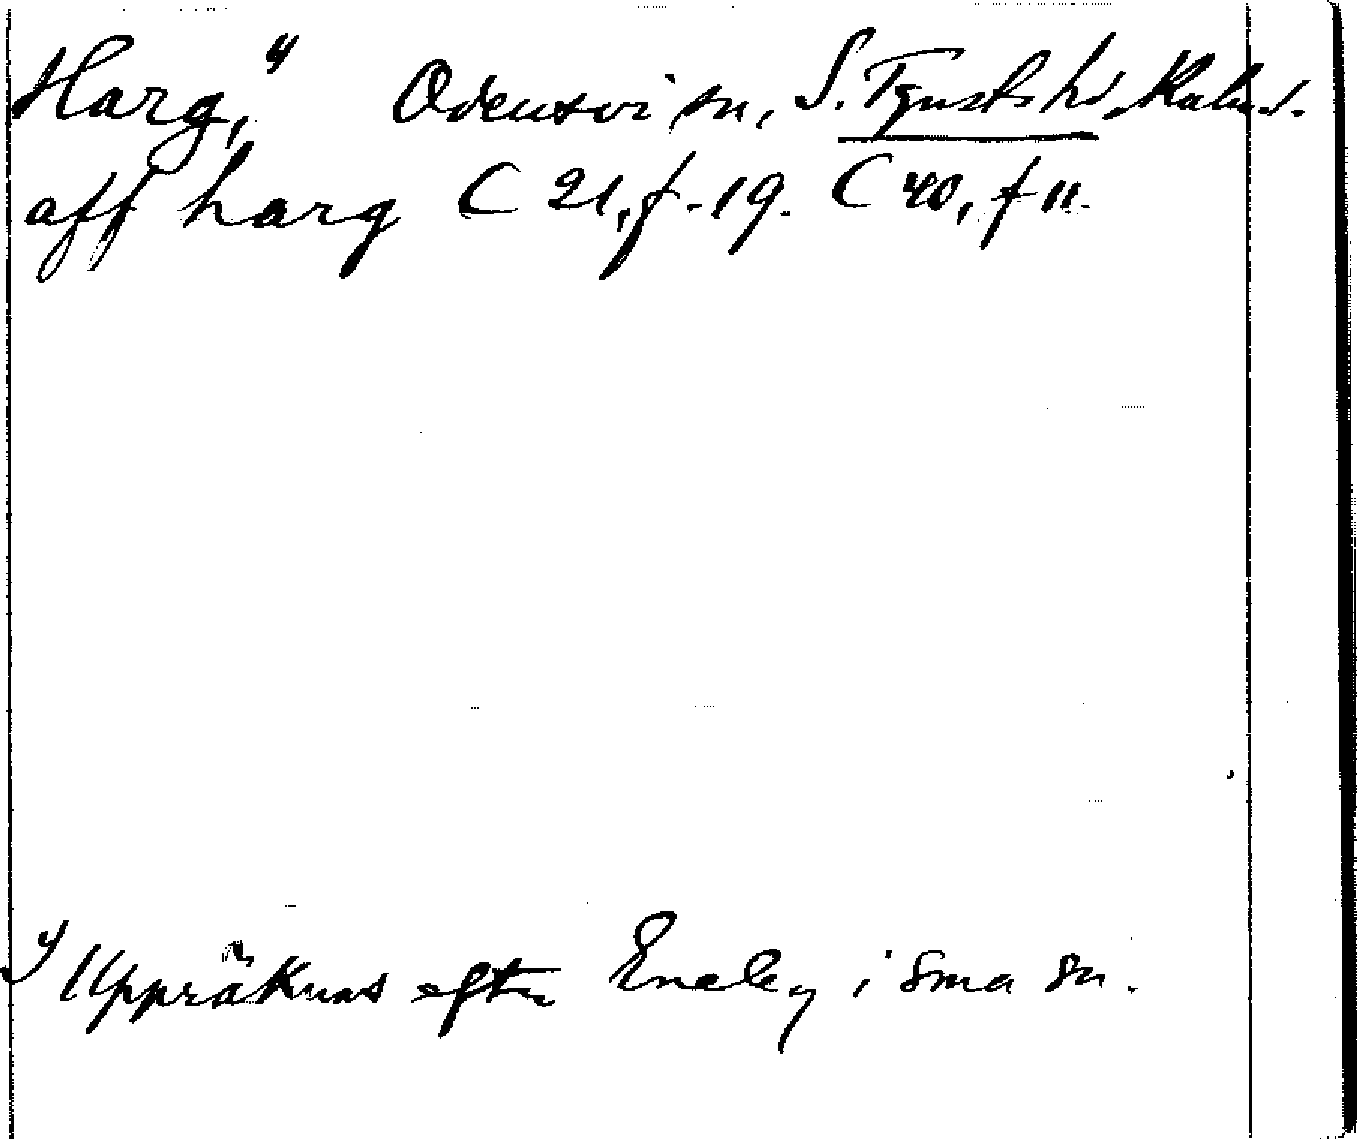 Harg, 1) Odensvi sn, S. Tjusts hd, Kalm. l.
aff harg C 21, f. 19. C 40, f 11.
1) Uppräknas efter Eneby i sma sn.